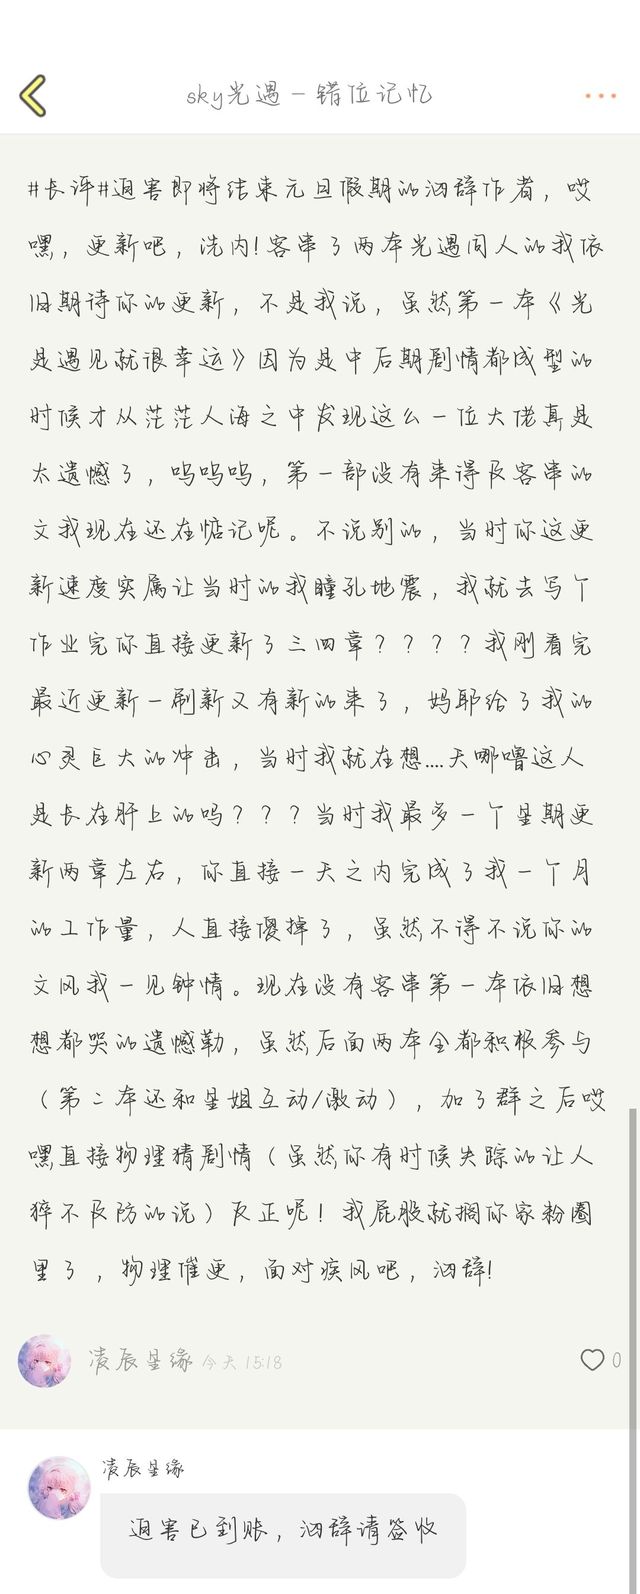 sky光遇－错位记忆
#长评#迫害即将结束元旦假期的泅辞作者，哎
嘿，更新吧，洗内!客串了两本光遇同人的我依
旧期待你的更新，不是我说，虽然第一本《光
是遇见就很幸运》因为是中后期剧情都成型的
时候才从茫茫人海之中发现这么一位大佬真是
太遗憾了，呜呜呜，第一部没有来得及客串的
文我现在还在惦记呢。不说别的，当时你这更
新速度实属让当时的我瞳孔地震，我就去写个
作业完你直接更新了三四章？？？？我刚看完
最近更新一刷新又有新的来了，妈耶给了我的
心灵巨大的冲击，当时我就在想....天哪噜这人
是长在肝上的吗？？？当时我最多一个星期更
新两章左右，你直接一天之内完成了我一个月
的工作量，人直接傻掉了，虽然不得不说你的
文风我一见钟情。现在没有客串第一本依旧想
想都哭的遗憾勒，虽然后面两本全都积极参与
（第二本还和星姐互动/激动），加了群之后哎
嘿直接物理猜剧情（虽然你有时候失踪的让人
猝不及防的说）反正呢！我屁股就搁你家粉圈
里了，物理催更，面对疾风吧，泅辞!
凌辰星缘 今天 15:18
0
凌辰星缘
迫害已到账，泅辞请签收